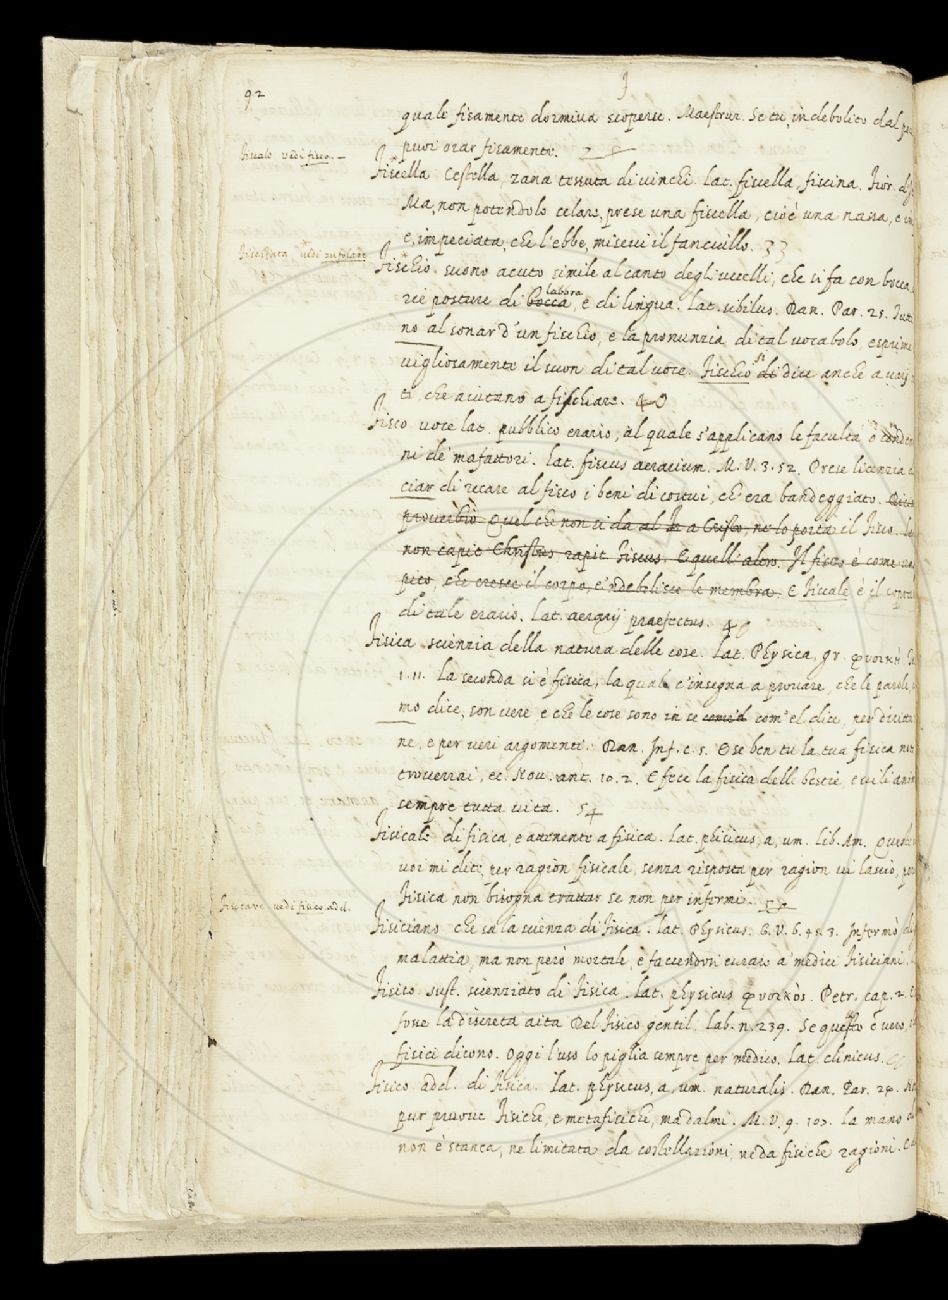 92
F
quale fisamente dormiva scoperse. Maestruz. Se tu, indebolito dal
puoi orar fisamente.
Fiscale vedi fisco. –
Fiscella Cestella, zana tessuta di vinchi. Lat. fiscella, fiscina. Fior.
Ma, non potendolo celare, prese una fiscella, cioè una nassa,
e, impeciata che l'ebbe, misevi il fanciullo. 33
Fischiata vedi zufolare
Fischio. suono acuto simile al canto degli uccelli, che si fa con bocca,
rie posture di bocca labbra, e di lingua. Lat. sibilus. Dan. Par. 25.
no al sonar d'un fischio, e la pronunzia di tal vocabolo esprime
vigliosamente il suon di tal voce. Fischio di si dice anche a
ti, che aiutano a fischiare. 40
Fisco voce lat. pubblico erario, al quale s'applicano le facultà
ni de' mafattori. Lat. fiscus aerarium. M. V. 3. 52. Prese licenzia
ciar di recare al fisco i beni di costui, ch' era bandeggiato.
proverbio Quel che non si da a Cristo, ne lo porta il fisco.
non capit Christus rapit Fiscus. E quell' altro. Il fisco è come
che cresce il corpo, e'ndebolisce le membra. E Fiscale è il
di tale erario. Lat. aerarij praefectus. 40
Fisica scienzia della natura delle cose. Lat. Physica, gr. φυσικὴ
1. 11. La seconda si è fisica, la quale c'insegna a provare, che le parole,
mo dice, son vere e che le cose sono in se com' el dice, per diritta
ne, e per veri argomenti. Dan. Inf. c. 5. E se ben tu la tua fisica
troverrai, ec. Nov. ant. 10. 2. E fece la fisica delle bestie, e
sempre tutta vita. 54
Fisicale di fisica, e attenente a fisica. Lat. phisicus, a, um. Lib. Am.
voi mi dite, per ragion fisicale, senza risposta per ragion vi lascio,
Fisica non bisogna trattar se non per infermi.
Fisicare vedi fisico add.
Fisiciano che sa la scienza di Fisica. Lat. Physicus. G. V. 6. 45. 3. Infermò
malattia, ma non però mortale, e faccendosi curare a' medici Fisiciani.
Fisico sust. scienziato di Fisica. Lat. physicus φυσικὸς. Petr. cap. 2.
fosse la discreta aita Del fisico gentil. Lab. n. 239. Se questo è vero,
fisici dicono. Oggi l'uso lo piglia sempre per medico. Lat. clinicus.
Fisico add. di fisica. Lat. physicus, a, um. naturalis. Dan. Par. 24.
pur pruove Fisiche, e metafisiche, ma dalmi. M. V. 9. 107. La mano
non è stanca, ne limitata da costellazioni, ne da fisiche ragioni.